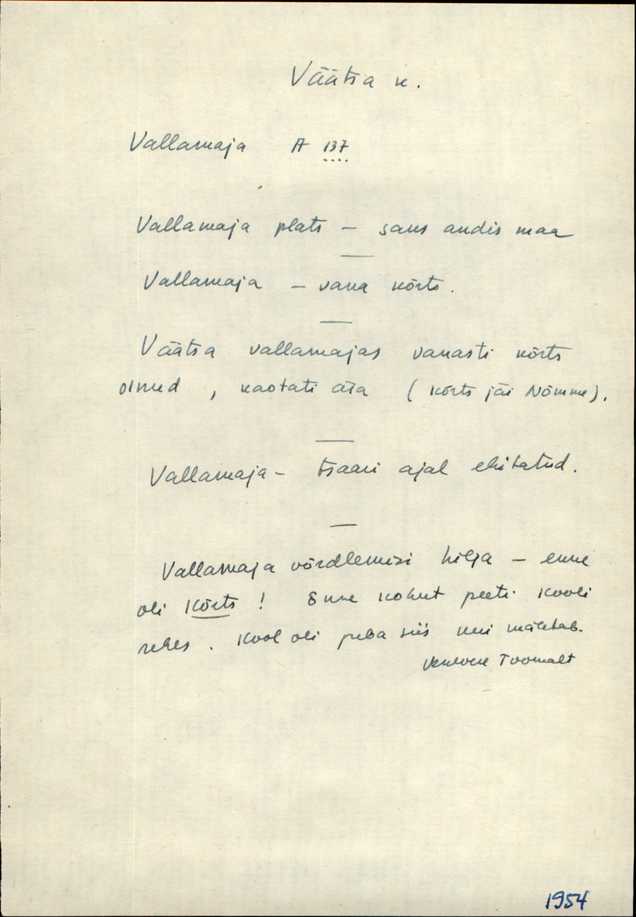 Väätsa v.
Vallamaja A 137
Vallamaja plats – saks andis maa
Vallamaja – vana kõrts.
Väätsa vallamajas vanasti kõrts
olnud, kaotati ära (kõrts jäi Nõmme).
Vallamaja – tsaari ajal ehitatud.
Vallamaja võrdlemisi hilja – enne
oli kõrts! Enne kohut peeti kooli
rehes. Kool oli juba siis kui mäletab.
Toomalt
1954